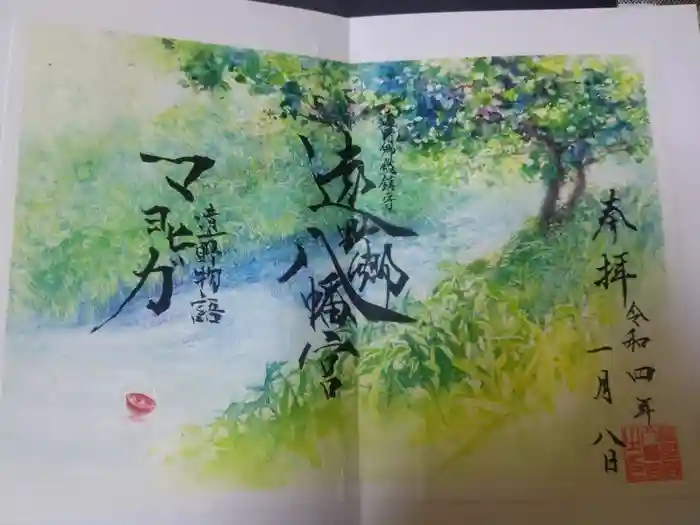 奉拝
令和四年
一月八日
遠野郷総鎮守
遠野郷
八幡宮
遠野物語
マヨヒガ